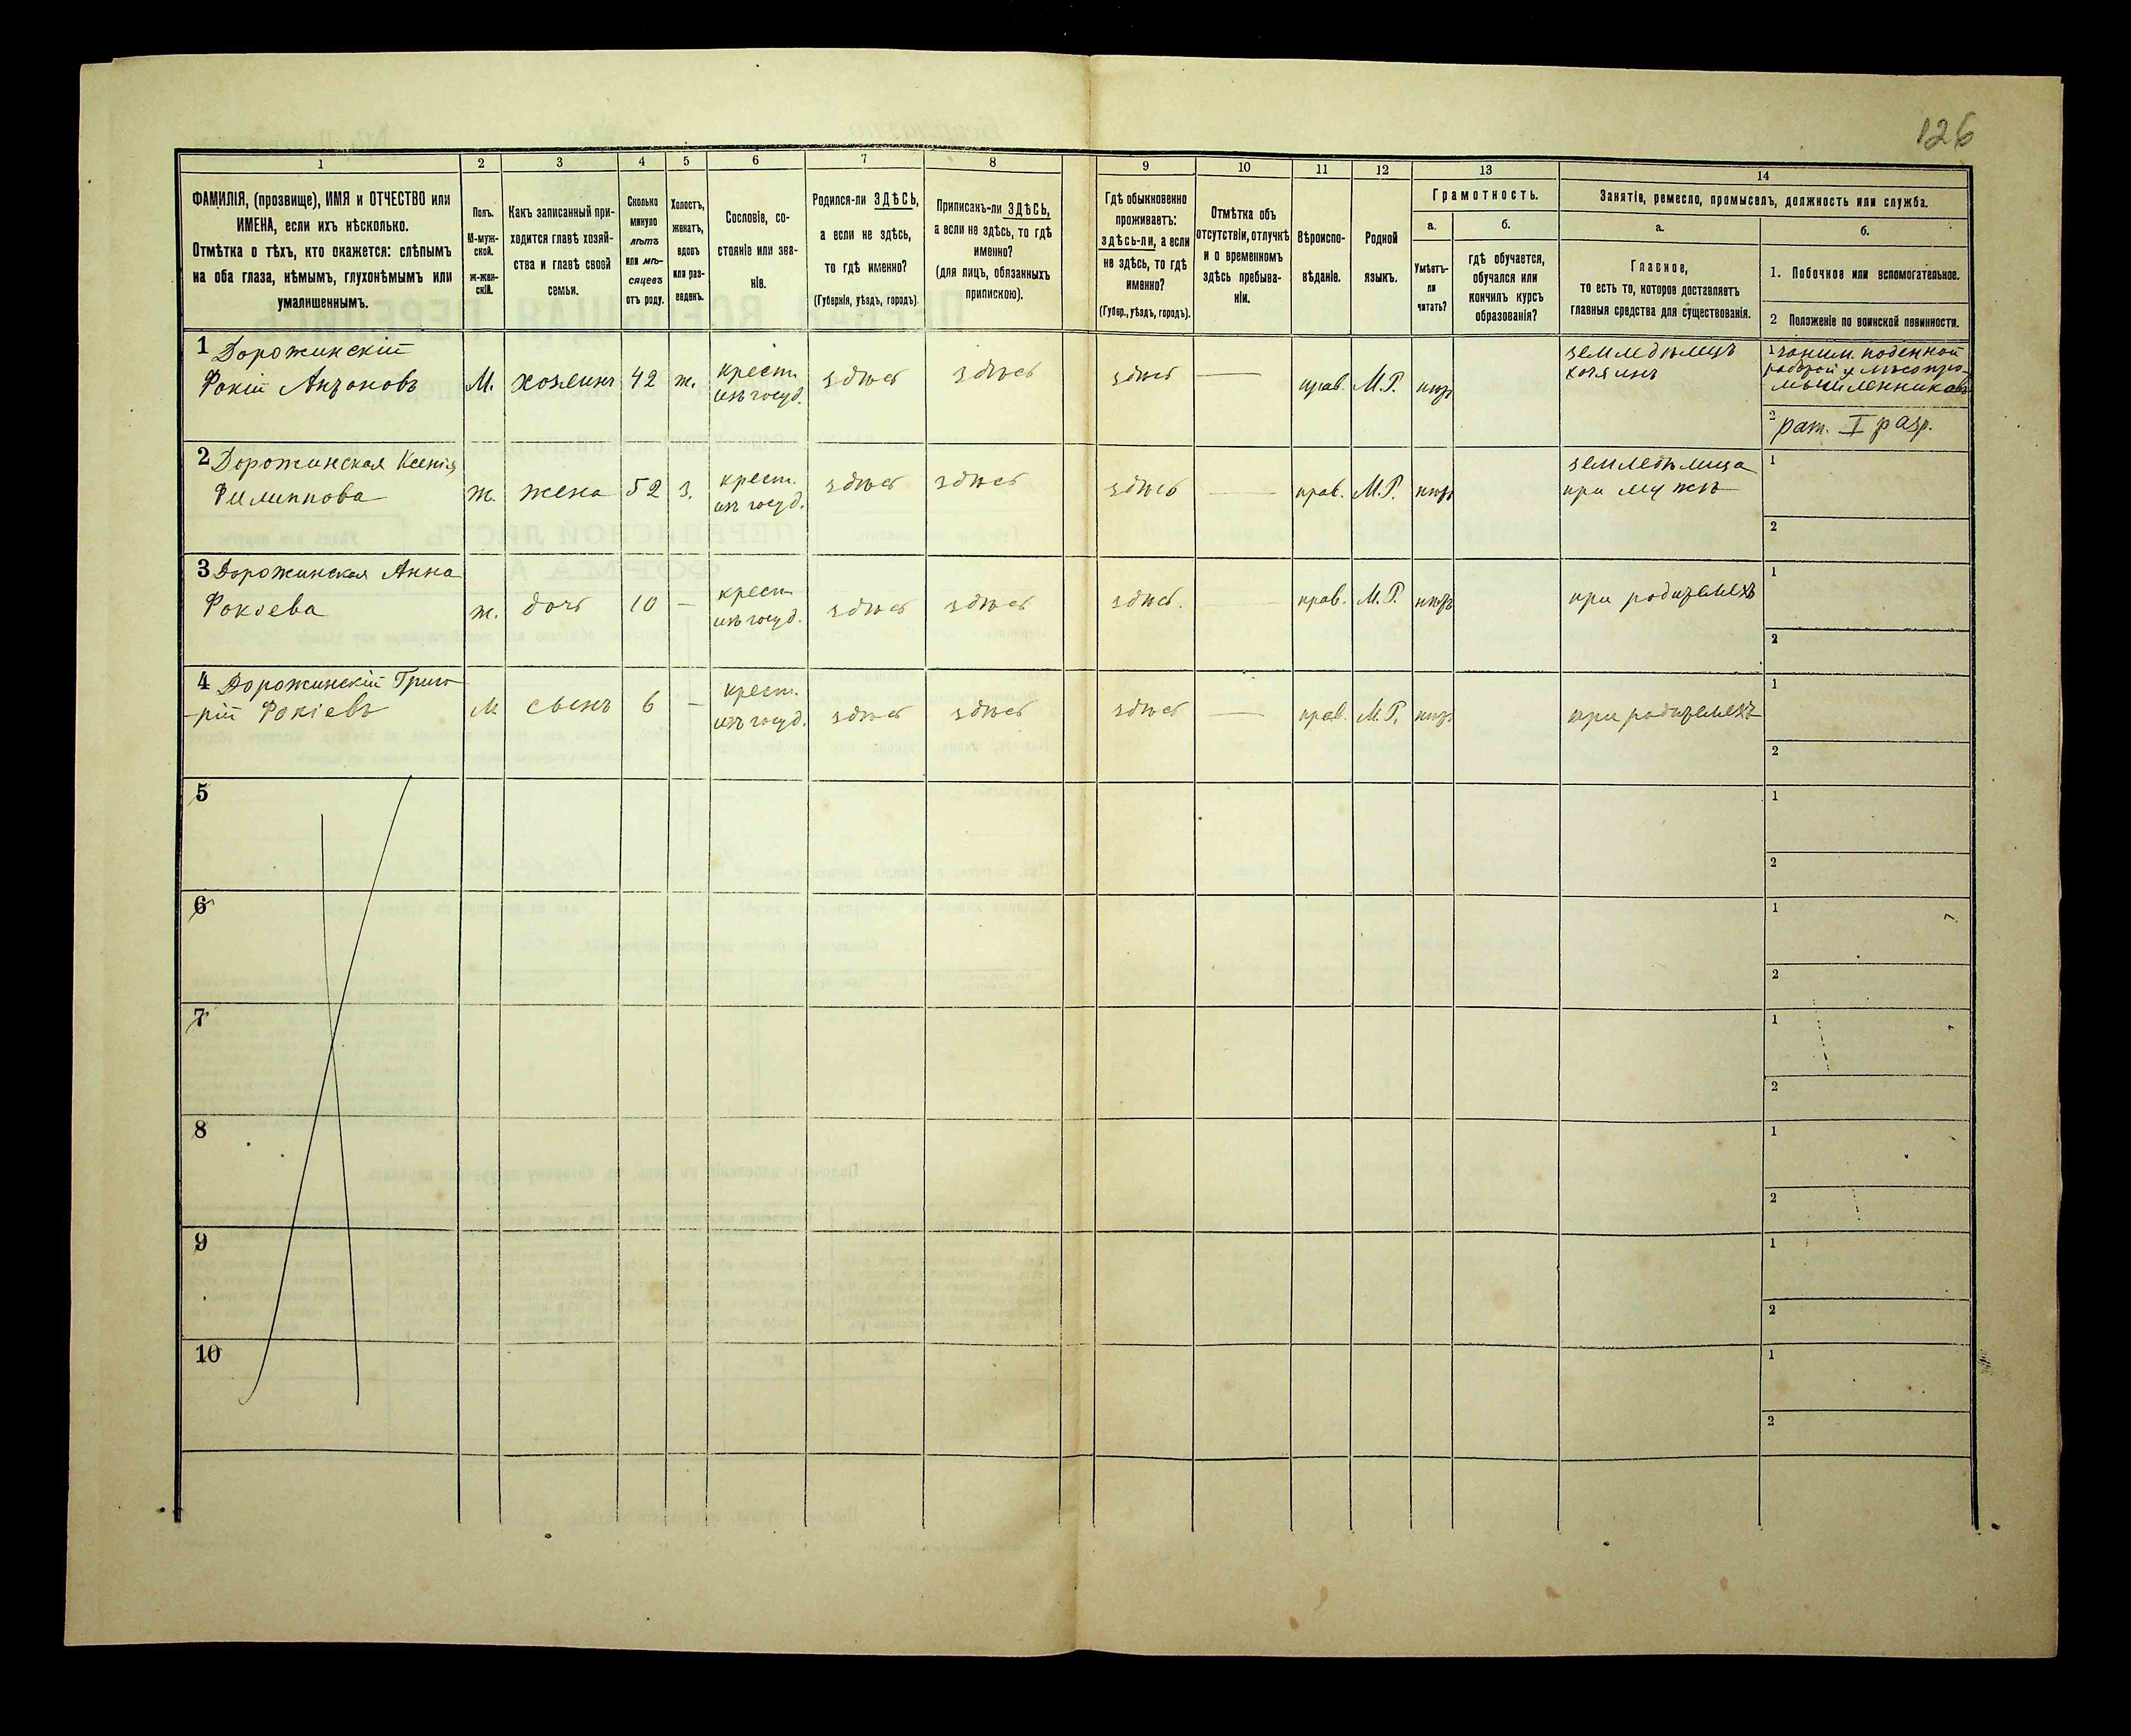 126
1
2
3
4
5
6
7
8
9
10
11
12
13
14
ФАМИЛІЯ, (прозвище), ИМЯ и ОТЧЕСТВО или
ИМЕНА, если ихъ нѣсколько.
Отмѣтка о тѣхъ, кто окажется: слѣпымъ
на оба глаза, нѣмымъ, глухонѣмымъ или
умалишеннымъ.
Полъ.
М-муж-
ской.
ж-жен-
скій.
Какъ записанный при-
ходится главѣ хозяй-
ства и главѣ своей
семьи.
Сколько
минуло
лѣтъ
или мѣ-
сяцевъ
отъ роду.
Холостъ,
женатъ,
вдовъ
или раз-
веденъ.
Сословіе, со-
стояніе или зва-
ніе.
Родился-ли ЗДѢСЬ,
а если не здѣсь,
то гдѣ именно?
(Губернія, уѣздъ, городъ).
Приписанъ-ли ЗДѢСЬ,
а если не здѣсь, то гдѣ
именно?
(для лицъ, обязанныхъ
припискою).
Гдѣ обыкновенно
проживаетъ:
здѣсь-ли, а если
не здѣсь, то гдѣ
именно?
(Губер., уѣздъ, городъ).
Отмѣтка объ
отсутствіи, отлучкѣ
и о временномъ
здѣсь пребыва-
ніи.
Вѣроиспо-
вѣданіе.
Родной
языкъ.
Грамотность.
а.
Умѣетъ-
ли
читать?
б.
гдѣ обучается,
обучался или
кончилъ курсъ
образованія?
Занятіе, ремесло, промыселъ, должность или служба.
а.
Главное,
то есть то, которое доставляетъ
главныя средства для существованія.
б.
1. Побочное или вспомогательное.
2 Положеніе по воинской повинности.
1 Дорожинскій
Фокій Антоновъ
М.
хозяинъ
42
ж.
крест.
изъ госуд.
здѣсь
здѣсь
здѣсь
—
прав.
М.Р.
нѣтъ
земледѣлецъ
хозяинъ
1 заним. поденной
работой у мясопро-
мышленниковъ
2 рат. I разр.
2 Дорожинская Ксенія
Филиппова
ж.
жена
52
з.
крест.
изъ госуд.
здѣсь
здѣсь
здѣсь
—
прав.
М.Р.
нѣтъ
земледѣлица
при мужѣ
1
2
3 Дорожинская Анна
Фокіева
ж.
дочь
10
—
крест.
изъ госуд.
здѣсь
здѣсь
здѣсь.
—
прав.
М.Р.
нѣтъ
при родителяхъ
1
2
4 Дорожинскій Григо-
-рій Фокіевъ
М
сынъ
6
—
крест.
изъ госуд.
здѣсь
здѣсь
здѣсь
—
прав.
М.Р.
нѣтъ
при родителяхъ
1
2
5
1
2
6
1
2
7
1
2
8
1
2
9
1
2
10
1
2